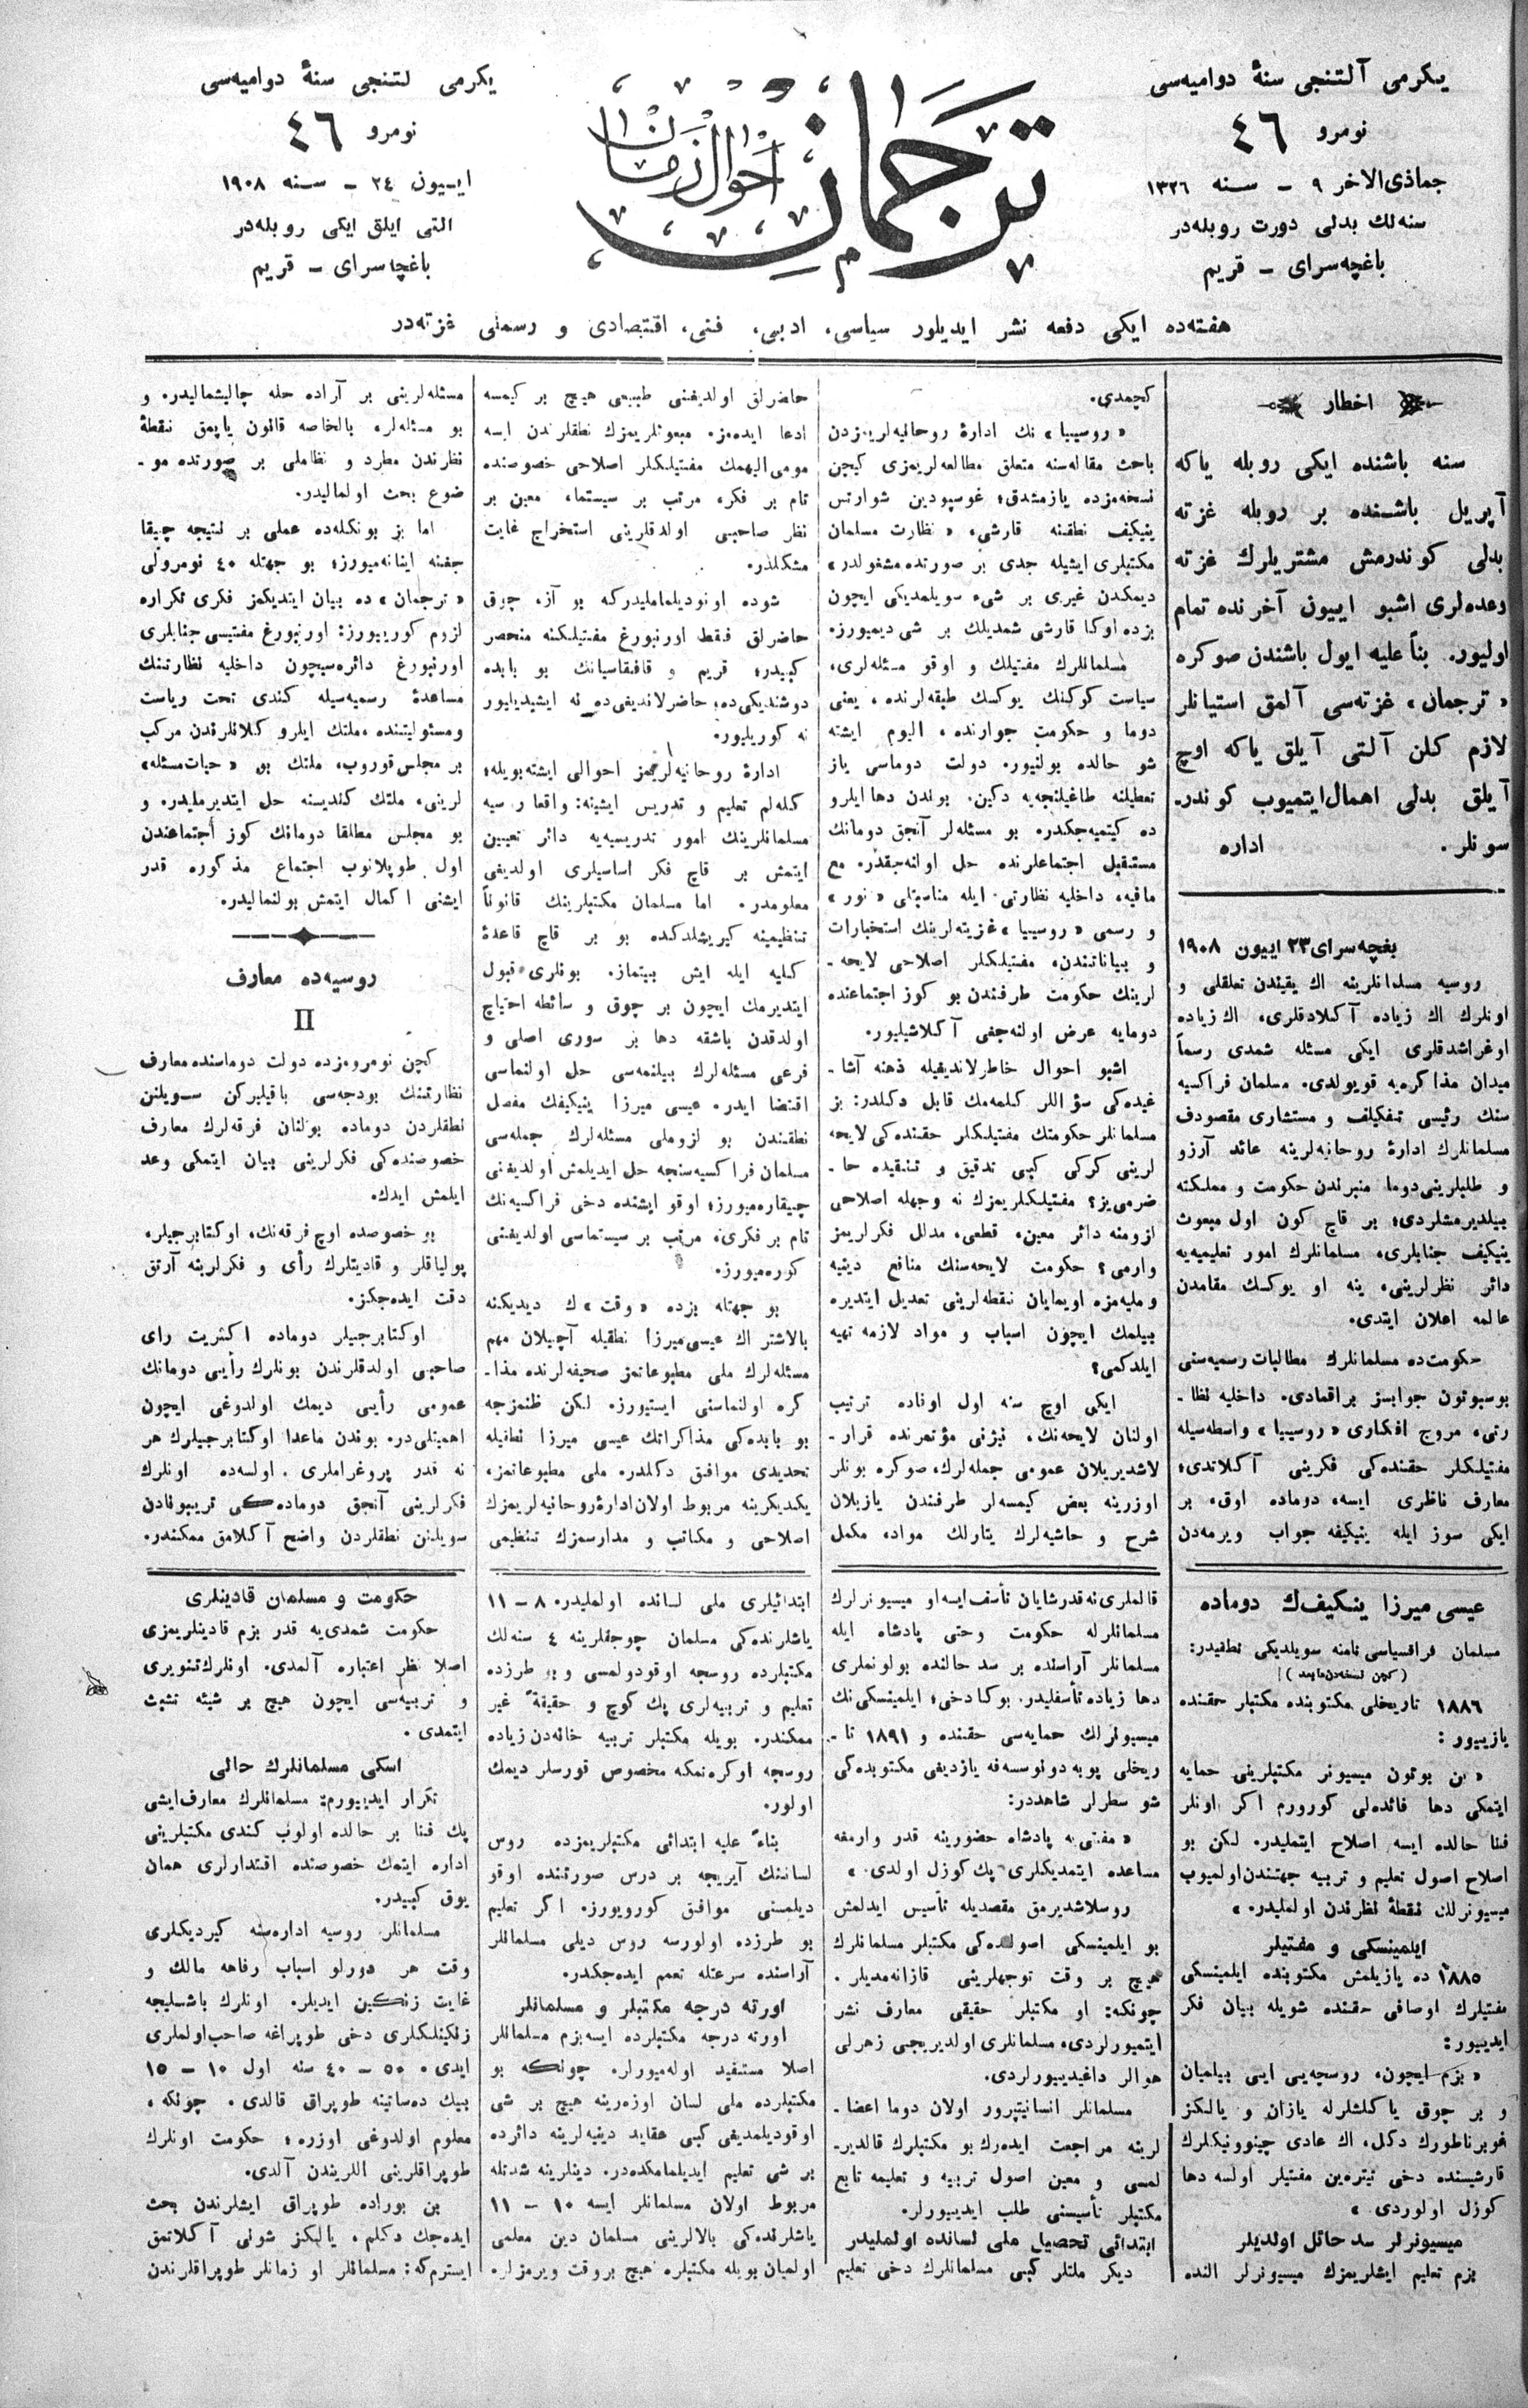 یكرمی آلتنجی سنهٔ دوامیه‌سی
نومرو ٤٦
جماذی‌الاخر ٩ – سنه ١٣٢٦
سنه‌لك بدلی دورت روبله‌در
باغچه‌سرای – قریم
ترجمان احوال زمان
یكرمی لتنجی سنهٔ دوامیه‌سی
نومرو ٤٦
ایـیون ٢٤ – سنه ١٩٠٨
التی ایلق ایكی روبله‌در
باغچا سرای – قریم
هفته‌ده ایكی دفعه نشر ایدیلور سیاسی، ادبی، فنی، اقتصادی و رسملی غزته‌در
اخطار
سنه باشنده ایكی روبله یاكه
آپریل باشنده بر روبله غزته
بدلی كوندرمش مشتریلرك غزته
وعده‌لری اشبو اییون آخرنده تمام
اولیور. بناً علیه ایول باشندن صوكره
« ترجمان » غزته‌سی آلمق استیانلر
لازم كلن آلتی آیلق یاكه اوچ
آیلق بدلی اهمال ایتمیوب كوندر-
سونلر. اداره
بغچه‌سرای ٢٣ اییون ١٩٠٨
روسیه مسلمانلرینه اك یقیندن تعلقلی و
اونلرك اك زیاده آكلادقلری، اك زیاده
اوغراشدقلری ایكی مسئله شمدی رسماً
میدان مذاكره‌یه قویولدی. مسلمان فراكسیه
سنك رئیسی تفكیلف و مستشاری مقصودف
مسلمانلرك ادارهٔ روحانیه‌لرینه عائد آرزو
و طلبلرینی دوما منبرندن حكومت و مملكته
بیلدیرمشلردی؛ بر قاچ كون اول مبعوث
ینیكیف جنابلری، مسلمانلرك امور تعلیمیه‌یه
دائر نظرلرینی، ینه او یوكسك مقامدن
عالمه اعلان ایتدی.
حكومت‌ده مسلمانلرك مطالبات رسمیه‌سنی
بوسبوتون جوابسز براقمادی. داخلیه نظا-
رتی، مروج افكاری « روسییا » واسطه‌سیله
مفتیلكلر حقنده‌كی فكرینی آكلاندی؛
معارف ناظری ایسه، دوماده اوق، بر
ایكی سوز ایله ینیكیفه جواب ویرمه‌دن
كچمدی.
« روسییا » نك ادارهٔ روحانیه‌لریمزدن
باحث مقاله‌سنه متعلق مطالعه‌لریمزی كیچن
نسخه‌مزده یازمشدق؛ غوسپودین شوارتس
ینیكیف نطقنه قارشی، « نظارت مسلمان
مكتبلری ایشیله جدی بر صورتده مشغولدر »
دیمكدن غیری بر شیء سویلمدیكی ایچون
بزده اوكا قارشی شمدیلك بر شی دیمیورز.
مسلمانلرك مفتیلك و اوقو مسئله‌لری،
سیاست كوكنك یوكسك طبقه‌لرنده، یعنی
دوما و حكومت جوارنده، الیوم ایشته
شو حالده بولنیور. دولت دوماسی یاز
تعطیلنه طاغیلنجه‌یه دكین. بوندن دها ایلرو
ده كیتمیه‌جكدر. بو مسئله‌لر آنجق دومانك
مستقبل اجتماعلرنده حل اولنه‌جقدر. مع
مافیه، داخلیه نظارتی ایله مناسبتلی « نور »
و رسمی « روسییا » غزیته‌لرینك استخبارات
و بیاناتندن، مفتیلكلر اصلاحی لایحه-
لرینك حكومت طرفندن بو كوز اجتماعنده
دومایه عرض اولنه‌جغی آكلاشیلیور.
اشبو احوال خاطرلاندیقیله ذهنه آشا-
غیده‌كی سؤاللر كلمه‌مك قابل دكلدر: بز
مسلمانلر حكومتك مفتیلكلر حقنده‌كی لایحه
لرینی كركی كبی تدقیق و تنقیده حا-
ضرمی‌یز؟ مفتیلكلریمزك نه وجهله اصلاحی
لزومنه دائر معین، قطعی، مدلل فكرلریمز
وارمی؟ حكومت لایحه‌سنك منافع دینیه
و ملیه‌مزه اویمایان نقطه‌لرینی تعدیل ایتدیره
بیلمك ایچون اسباب و مواد لازمه تهیه
ایلدكمی؟
ایكی اوچ سنه اول اوفاده ترتیب
اولنان لایحه‌نك، نیژنی مؤتمرنده قرار-
لاشدیریلان عمومی جمله‌لرك، صوكره بونلر
اوزرینه بعض كیمسه‌لر طرفندن یازیلان
شرح و حاشیه‌لرك یتارلك مواد، مكمل
حاضرلق اولدیغنی طبیعی هیچ بر كیمسه
ادعا ایده‌مز. مبعوثلریمزك نطقلرندن ایسه
مومی الیهمك مفتیلكلر اصلاحی خصوصنده
تام بر فكر، مرتب بر سیستما، معین بر
نظر صاحبی اولدقلرینی استخراج غایت
مشكلدر.
شوده اونودیلمامالیدركه بو آز، چوق
حاضرلق فقط اورنبورغ مفتیلكنه منحصر
كبیدر؛ قریم و قافقاسیانك بو بابده
دوشندیكی‌ده، حاضرلاندیغی‌ده نه ایشیدیلیور
نه كوریلیور.
ادارهٔ روحانیه‌لریمز احوالی ایشته بویله؛
كله‌لم تعلیم و تدریس ایشینه: واقعا رسیه
مسلمانلرینك امور تدریسیه‌یه دائر تعیین
ایتمش بر قاچ فكر اساسیلری اولدیغی
معلومدر. اما مسلمان مكتبلرینك قانوناً
تنظیمینه كیریشلدكده بو بر قاچ قاعدهٔ
كلیه ایله ایش بیتماز. بونلری قبول
ایتدیرمك ایچون بر چوق و سائطه احتیاج
اولدقدن باشقه دها بر سوری اصلی و
فرعی مسئله‌لرك بیلنمه‌سی حل اولنماسی
اقتضا ایدر. عیسی میرزا ینیكیفك مفصل
نطقندن بو لزوملی مسئله‌لرك جمله‌سی
مسلمان فراكسیه‌سنجه حل ایدیلمش اولدیغنی
چیقاره‌میورز؛ اوقو ایشنده دخی فراكسیه‌نك
تام بر فكری، مرتب بر سیستماسی اولدیغنی
كوره‌میورز.
بو جهتله بزده « وقت » ك دیدیكنه
بالاشتر اك عیسی میرزا نطقیله آچیلان مهم
مسئله‌لرك ملی مطبوعاتمز صحیفه‌لرنده مذا-
كره اولنماسنی ایستیورز. لكن ظنمزجه
بو بابده‌كی مذاكراتك عیسی میرزا نطقیله
تحدیدی موافق دكلدر. ملی مطبوعاتمز،
یكدیكرینه مربوط اولان ادارهٔ روحانیه‌لریمزك
اصلاحی و مكاتب و مدارسمزك تنظیمی
مسئله‌لرینی بر آراده حله چالیشمالیدر. و
بو مسئله‌لر، بالخاصه قانون یاپمق نقطهٔ
نظرندن مطرد و نظاملی بر صورتده مو-
ضوع بحث اولمالیدر.
اما بز بونكله‌ده عملی بر نتیجه چیقا
جغنه اینانه‌میورز؛ بو جهتله ٤٠ نومرولی
« ترجمان » ده بیان ایتدیكمز فكری تكراره
لزوم كورییورز: اورنبورغ مفتیسی جنابلری
اورنبورغ دائره‌سیچون داخلیه نظارتننك
مساعدهٔ رسمیه‌سیله كندی تحت ریاست
ومسئولیتنده، ملتك ایلرو كلانلرندن مركب
بر مجلس قوروب، ملتك بو « حیات مسئله »
لرینی، ملتك كندیسنه حل ایتدیرملیدر. و
بو مجلس مطلقا دومانك كوز اجتماعندن
اول طوپلانوب اجتماع مذكوره قدر
ایشنی اكمال ایتمش بولنمالیدر.
روسیه‌ده معارف
II
كچن نومرومزده دولت دوماسنده معارف
نظارتننك بودجه‌سی باقیلیركن سویلنن
نطقلردن دوماده بولنان فرقه‌لرك معارف
خصوصنده‌كی فكرلرینی بیان ایتمكی وعد
ایلمش ایدك.
بو خصوصده اوچ فرقه‌نك، اوكتابرجیلر،
پولیاقلر و قادیتلرك رأی و فكرلرینه آرتق
دقت ایده‌جكز.
اوكتابرجیلر دوماده اكثریت رای
صاحبی اولدقلرندن بونلرك رأیی دومانك
عمومی رأیی دیمك اولدوغی ایچون
اهمیتلی‌در. بوندن ماعدا اوكتابرجیلرك هر
نه قدر پروغراملری اولسه‌ده اونلرك
فكرلرینی آنجق دوماده‌كی تریبونادن
سویلنن نطقلردن واضح آكلامق ممكندر.
عیسی میرزا ینیكیف‌ك دوماده
مسلمان فراقسیاسی نامنه سویلدیكی نطقیدر:
(كچن نسخه‌دن مابعد)
١٨٨٦ تاریخلی مكتوبنده مكتبلر حقنده
یازییور:
« بن بوتون میسیونر مكتبلرینی حمایه
ایتمكی دها فائده‌لی كورورم اكر اونلر
فنا حالده ایسه اصلاح ایتملیدر. لكن بو
اصلاح اصول تعلیم و تربیه جهتندن اولمیوب
میسیونرلك نقطهٔ نظرندن اولملیدر. »
ایلمینسكی و مفتیلر
١٨٨٥ ده یازیلمش مكتوبنده ایلمینسكی
مفتیلرك اوصافی حقنده شویله بیان فكر
ایدییور:
« بزم ایچون، روسجه‌یی ایی بیلمیان
و بر چوق یاكلشلرله یازان و یالكز
غوبرناطورك دكل، اك عادی چینوونیكلرك
قارشیسنده دخی تیتره‌ین مفتیلر اولسه دها
كوزل اولوردی »
میسیونرلر سد حائل اولدیلر
بزم تعلیم ایشلریمزك میسیونرلر النده
قالملری نه قدر شایان تأسف ایسه او میسیونرلرك
مسلمانلرله حكومت وحتی پادشاه ایله
مسلمانلر آراسنده بر سد حالنده بولونملری
دها زیاده تأسفلیدر. بوكا دخی؛ ایلمینسكی نك
میسیونرلك حمایه‌سی حقنده و ١٨٩١ تا-
ریخلی پوبه‌دونوسسه‌فه یازدیغی مكتوبده‌كی
شو سطرلر شاهددر:
« مفتی‌یه پادشاه حضورینه قدر وارمغه
مساعده ایتمدیكلری پك كوزل اولدی. »
روسلاشدیرمق مقصدیله تأسیس ایدلمش
بو ایلمینسكی اصولنده‌كی مكتبلر مسلمانلرك
هیچ بر وقت توجهلرینی قازانه‌مدیلر.
چونكه: او مكتبلر حقیقی معارف نشر
ایتمیورلردی، مسلمانلری اولدیریجی زهرلی
هوالر داغیدییورلردی.
مسلمانلر انسانیتپرور اولان دوما اعضا-
لرینه مراجعت ایده‌رك بو مكتبلرك قالدیر-
لمسی و معین اصول تربیه و تعلیمه تابع
مكتبلر تأسیسنی طلب ایدییورلر.
ابتدائی تحصیل ملی لسانده اولملیدر
دیكر ملتلر كبی مسلمانلرك دخی تعلیم
ابتدائیلری ملی لسانده اولملیدر. ٨ – ١١
یاشلرنده‌كی مسلمان چوجقلرینه ٤ سنه‌لك
مكتبلرده روسجه اوقودولمسی و بو طرزده
تعلیم و تربیه‌لری پك كوچ و حقیقةً غیر
ممكندر. بویله مكتبلر تربیه خانه‌دن زیاده
روسجه اوكره‌نمكه مخصوص قورسلر دیمك
اولور.
بناءً علیه ابتدائی مكتبلریمزده روس
لساننك آیریجه بر درس صورتنده اوقو
دیلمسنی موافق كورویورز. اكر تعلیم
بو طرزده اولورسه روس دیلی مسلمانلر
آراسنده سرعتله تعمم ایده‌جكدر.
اورته درجه مكتبلر و مسلمانلر
اورته درجه مكتبلرده ایسه بزم مسلمانلر
اصلا مستفید اوله‌میورلر. چونكه بو
مكتبلرده ملی لسان اوزه‌رینه هیچ بر شی
اوقودیلمدیغی كبی عقاید دینیه‌لرینه دائرده
بر شی تعلیم ایدیلمامكده‌در. دینلرینه شدتله
مربوط اولان مسلمانلر ایسه ١٠ – ١١
یاشلرنده‌كی بالالرینی مسلمان دین معلمی
اولمیان بویله مكتبلره هیچ بر وقت ویرمزلر.
حكومت و مسلمان قادینلری
حكومت شمدی‌یه قدر بزم قادینلریمزی
اصلا نظر اعتباره آلمدی. اونلرك تنویری
و تربیه‌سی ایچون هیچ بر شیئه تشبث
ایتمدی.
اسكی مسلمانلرك حالی
تكرار ایدییورم: مسلمانلرك معارف ایشی
پك فنا بر حالده اولوب كندی مكتبلرینی
اداره ایتمك خصوصنده اقتدارلری همان
یوق كبیدر.
مسلمانلر روسیه اداره‌سنه كیردیكلری
وقت هر دورلو اسباب رفاهه مالك و
غایت زنكین ایدیلر. اونلرك باشلیجه
زنكینلكلری دخی طوپراغه صاحب اولملری
ایدی. ٥٠ – ٤٠ سنه اول ١٠ – ١٥
بیك ده‌ساتینه طوپراق قالدی. چونكه،
معلوم اولدوغی اوزره؛ حكومت اونلرك
طوپراقلرینی اللریندن آلدی.
بن بوراده طوپراق ایشلرندن بحث
ایده‌جك دكلم، یالكز شونی آكلاتمق
ایسترم‌كه: مسلمانلر او زمانلر طوپراقلرندن